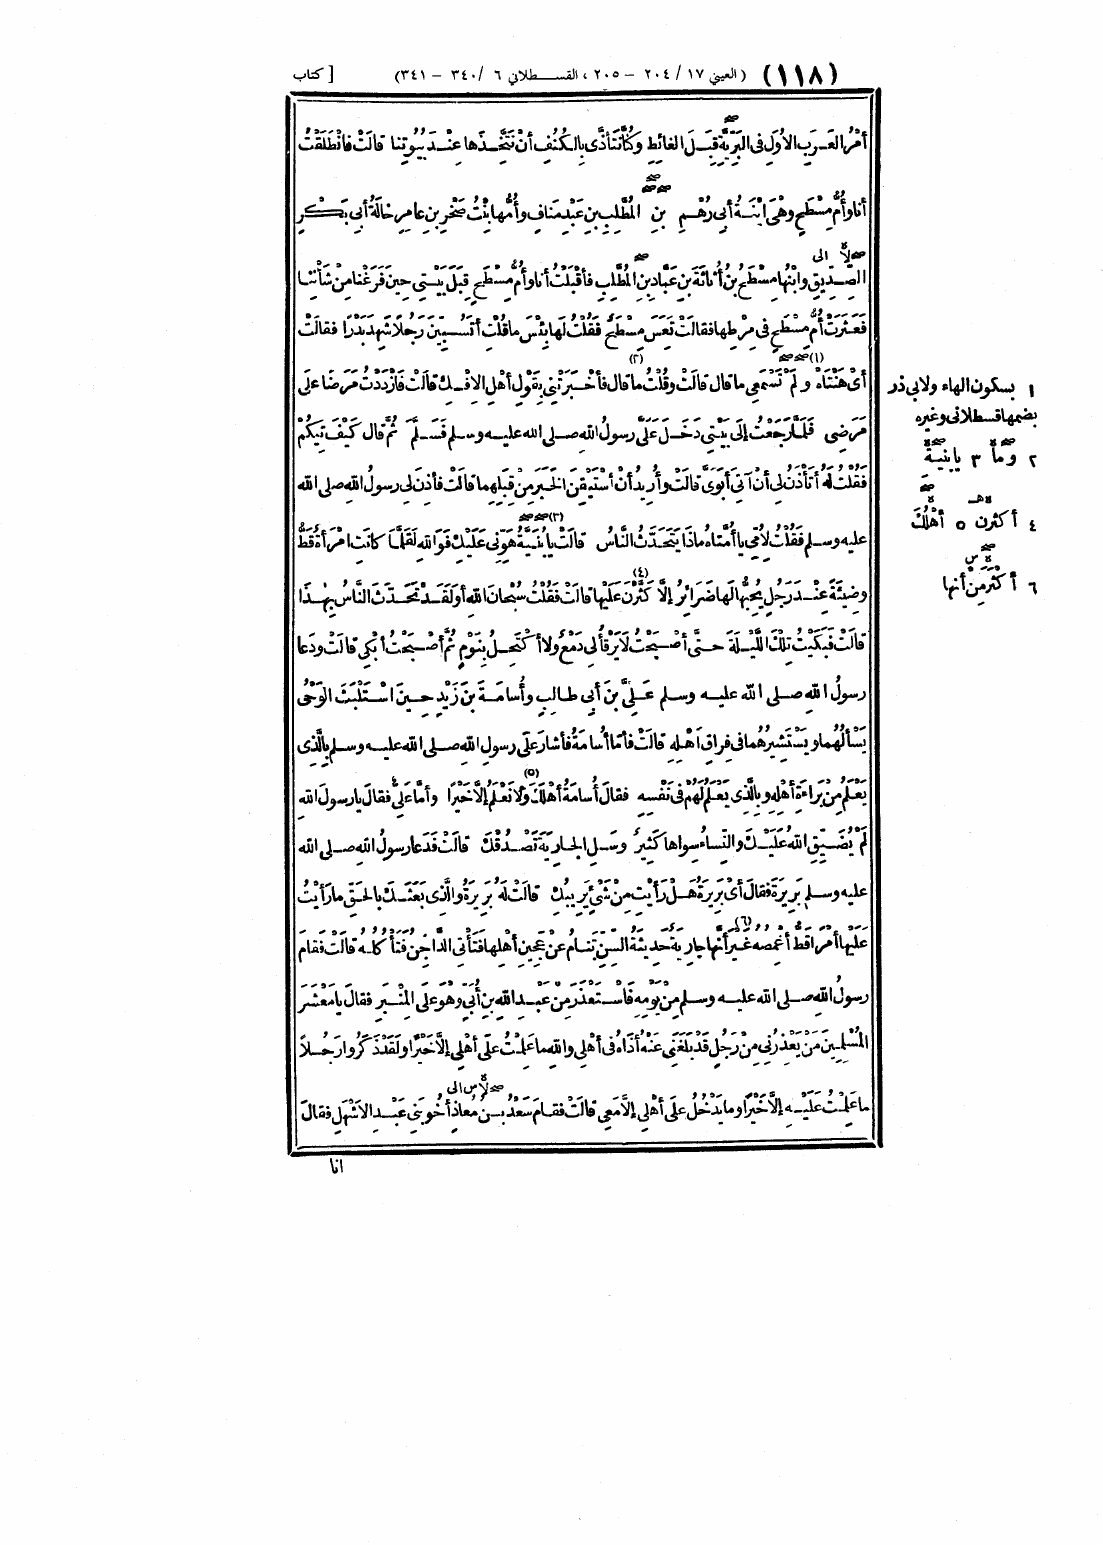 [ كتاب (العيني ١٧ / ٢٠٤ – ٢٠٥ ، القسطلاني ٦ / ٣٤٠ – ٣٤١) (١١٨)
أَمْرُ العَرَبِ الأُوَلِ فى البَرِّيَّةِ قِبَلَ الغائِطِ وَكُنَّا نَتَأَذَّى بالكُنُفِ أَنْ نَتَّخِذَها عِنْدَ بُيُوتِنا قالَتْ فانْطَلَقْتُ
أنا وأُمُّ مِسْطَحٍ وهْىَ ابْنَةُ أبى رُهْمِ بنِ المُطَّلِبِ بنِ عَبْدِ مَنافٍ وأُمُّها بِنْتُ صَخْرِ بنِ عامِرٍ خالَةُ أبى بَكْرٍ
الصِّدِّيقِ وابْنُها مِسْطَحُ بنُ أُثاثَةَ بنِ عَبَّادِ بنِ المُطَّلِبِ فأَقْبَلْتُ أنا وأُمُّ مِسْطَحٍ قِبَلَ بَيْتِى حِينَ فَرَغْنا مِنْ شَأْنِنا
فَعَثَرَتْ أُمُّ مِسْطَحٍ فى مِرْطِها فقالَتْ تَعِسَ مِسْطَحٌ فَقُلْتُ لَها بِئْسَ ما قُلْتِ أَتَسُبِّينَ رَجُلاً شَهِدَ بَدْرًا فقالَتْ
أىْ هَنْتاهْ (١) ولَمْ تَسْمَعِى ما قال قالَتْ وقُلْتُ ما قال (٢) فأَخْبَرَتْنِى بِقَوْلِ أَهْلِ الإفْكِ قالَتْ فازْدَدْتُ مَرَضًا على
مَرَضِى فَلَمَّا رَجَعْتُ إلى بَيْتِى دَخَلَ عَلَىَّ رسولُ الله صلى الله عليه وسلم فَسَلَّمَ ثُمَّ قال كَيْفَ تِيكُمْ
فَقُلْتُ لَهُ أَتَأْذَنُ لِى أنْ آتِىَ أَبَوَىَّ قالَتْ وأُرِيدُ أنْ أَسْتَيْقِنَ الخَبَرَ مِنْ قِبَلِهِما قالَتْ فأَذِنَ لِى رسولُ الله صلى الله
عليه وسلم فَقُلْتُ لأُمِّى يا أُمَّتاهُ ماذا يَتَحَدَّثُ النَّاسُ قالَتْ يا بُنَيَّةُ (٣) هَوِّنِى عَلَيْكِ فَوَاللهِ لَقَلَّما كانَتِ امْرَأَةٌ قَطُّ
وضِيئَةٌ عِنْدَ رَجُلٍ يُحِبُّها لَها ضَرائِرُ إلَّا كَثَّرْنَ (٤) عَلَيْها قالَتْ فَقُلْتُ سُبْحانَ اللهِ أوَلَقَدْ تَحَدَّثَ النَّاسُ بِهٰذا
قالَتْ فَبَكَيْتُ تِلْكَ اللَّيْلَةَ حتَّى أَصْبَحْتُ لا يَرْقَأُ لِى دَمْعٌ ولا أَكْتَحِلُ بِنَوْمٍ ثُمَّ أَصْبَحْتُ أَبْكِى قالَتْ ودَعا
رسولُ الله صلى الله عليه وسلم عَلِىَّ بنَ أبى طالِبٍ وأُسامَةَ بنَ زَيْدٍ حِينَ اسْتَلْبَثَ الوَحْىُ
يَسْأَلُهُما ويَسْتَشِيرُهُما فى فِراقِ أَهْلِهِ قالَتْ فأَمَّا أُسامَةُ فأَشارَ على رسولِ الله صلى الله عليه وسلم بالَّذِى
يَعْلَمُ مِنْ بَراءَةِ أَهْلِهِ وبالَّذِى يَعْلَمُ لَهُمْ فى نَفْسِهِ فقالَ أُسامَةُ أَهْلَكَ (٥) ولا نَعْلَمُ إلَّا خَيْرًا وأمَّا عَلِىٌّ فقالَ يا رسولَ الله
لَمْ يُضَيِّقِ اللهُ عَلَيْكَ والنِّساءُ سِواها كَثِيرٌ وسَلِ الجارِيَةَ تَصْدُقْكَ قالَتْ فَدَعا رسولُ الله صلى الله
عليه وسلم بَرِيرَةَ فقالَ أىْ بَرِيرَةُ هَلْ رَأَيْتِ مِنْ شَىْءٍ يَرِيبُكِ قالَتْ لَهُ بَرِيرَةُ والَّذِى بَعَثَكَ بالحَقِّ ما رَأَيْتُ
عَلَيْها أَمْرًا قَطُّ أَغْمِصُهُ غَيْرَ (٦) أنَّها جارِيَةٌ حَدِيثَةُ السِّنِّ تَنامُ عَنْ عَجِينِ أَهْلِها فَتَأْتِى الدَّاجِنُ فَتَأْكُلُهُ قالَتْ فَقامَ
رسولُ الله صلى الله عليه وسلم مِنْ يَوْمِهِ فاسْتَعْذَرَ مِنْ عَبْدِ اللهِ بنِ أُبَىٍّ وهوَ على المِنْبَرِ فقالَ يا مَعْشَرَ
المُسْلِمِينَ مَنْ يَعْذِرُنِى مِنْ رَجُلٍ قَدْ بَلَغَنِى عَنْهُ أَذاهُ فى أَهْلِى واللهِ ما عَلِمْتُ على أَهْلِى إلَّا خَيْرًا ولَقَدْ ذَكَرُوا رَجُلاً
ما عَلِمْتُ عَلَيْهِ إلَّا خَيْرًا وما يَدْخُلُ على أَهْلِى إلَّا مَعِى قالَتْ فقامَ سَعْدُ بنُ مُعاذٍ أَخُو بَنِى عَبْدِ الأَشْهَلِ فقالَ
انا
١ بسكون الهاء ولابى ذر
بضمها قسطلانى وغيره
٢ وما ٣ يابنية
٤ أكثرن ٥ أهلُك
٦ أكثر من أنها